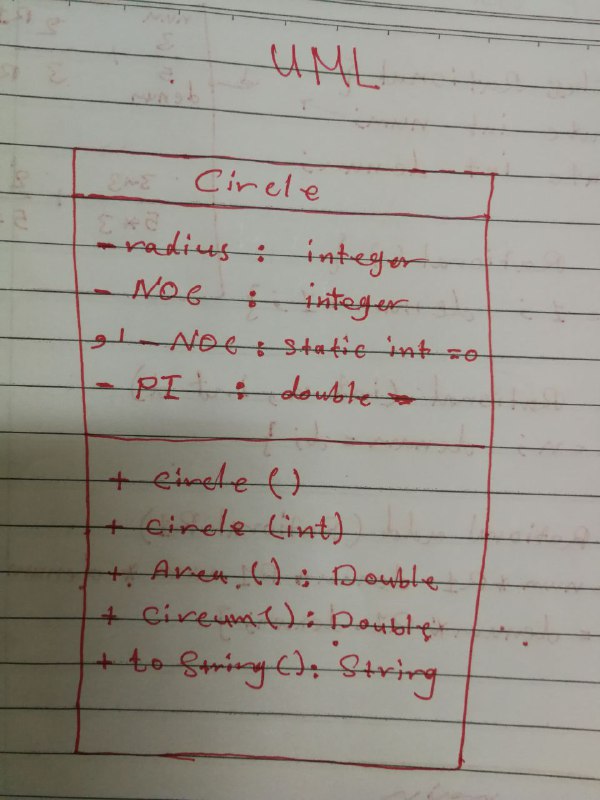 UML
Circle
- radius : integer
- NOC : integer
- NOC : static int =0
- PI : double
+ Circle ()
+ Circle (int)
+ Area () : Double
+ Circum() : Double
+ to String() : String